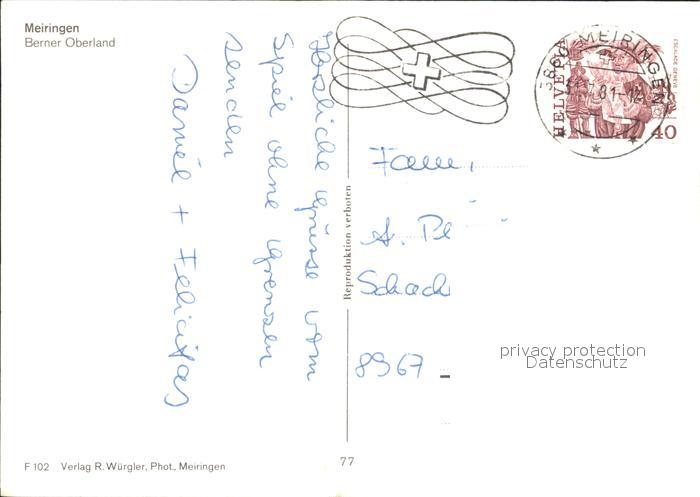 Meiringen
Berner Oberland
Herzliche Grüsse vom
Spiel ohne Grenzen
senden
Daniel + Felicitas
Reproduktion verboten
3860 MEIRINGEN
81-12
HELVETIA
40
ESCALADE GENÈVE
Fam.
A. Pe
Schach
8967
privacy protection
Datenschutz
F 102 Verlag R. Würgler, Phot., Meiringen
77